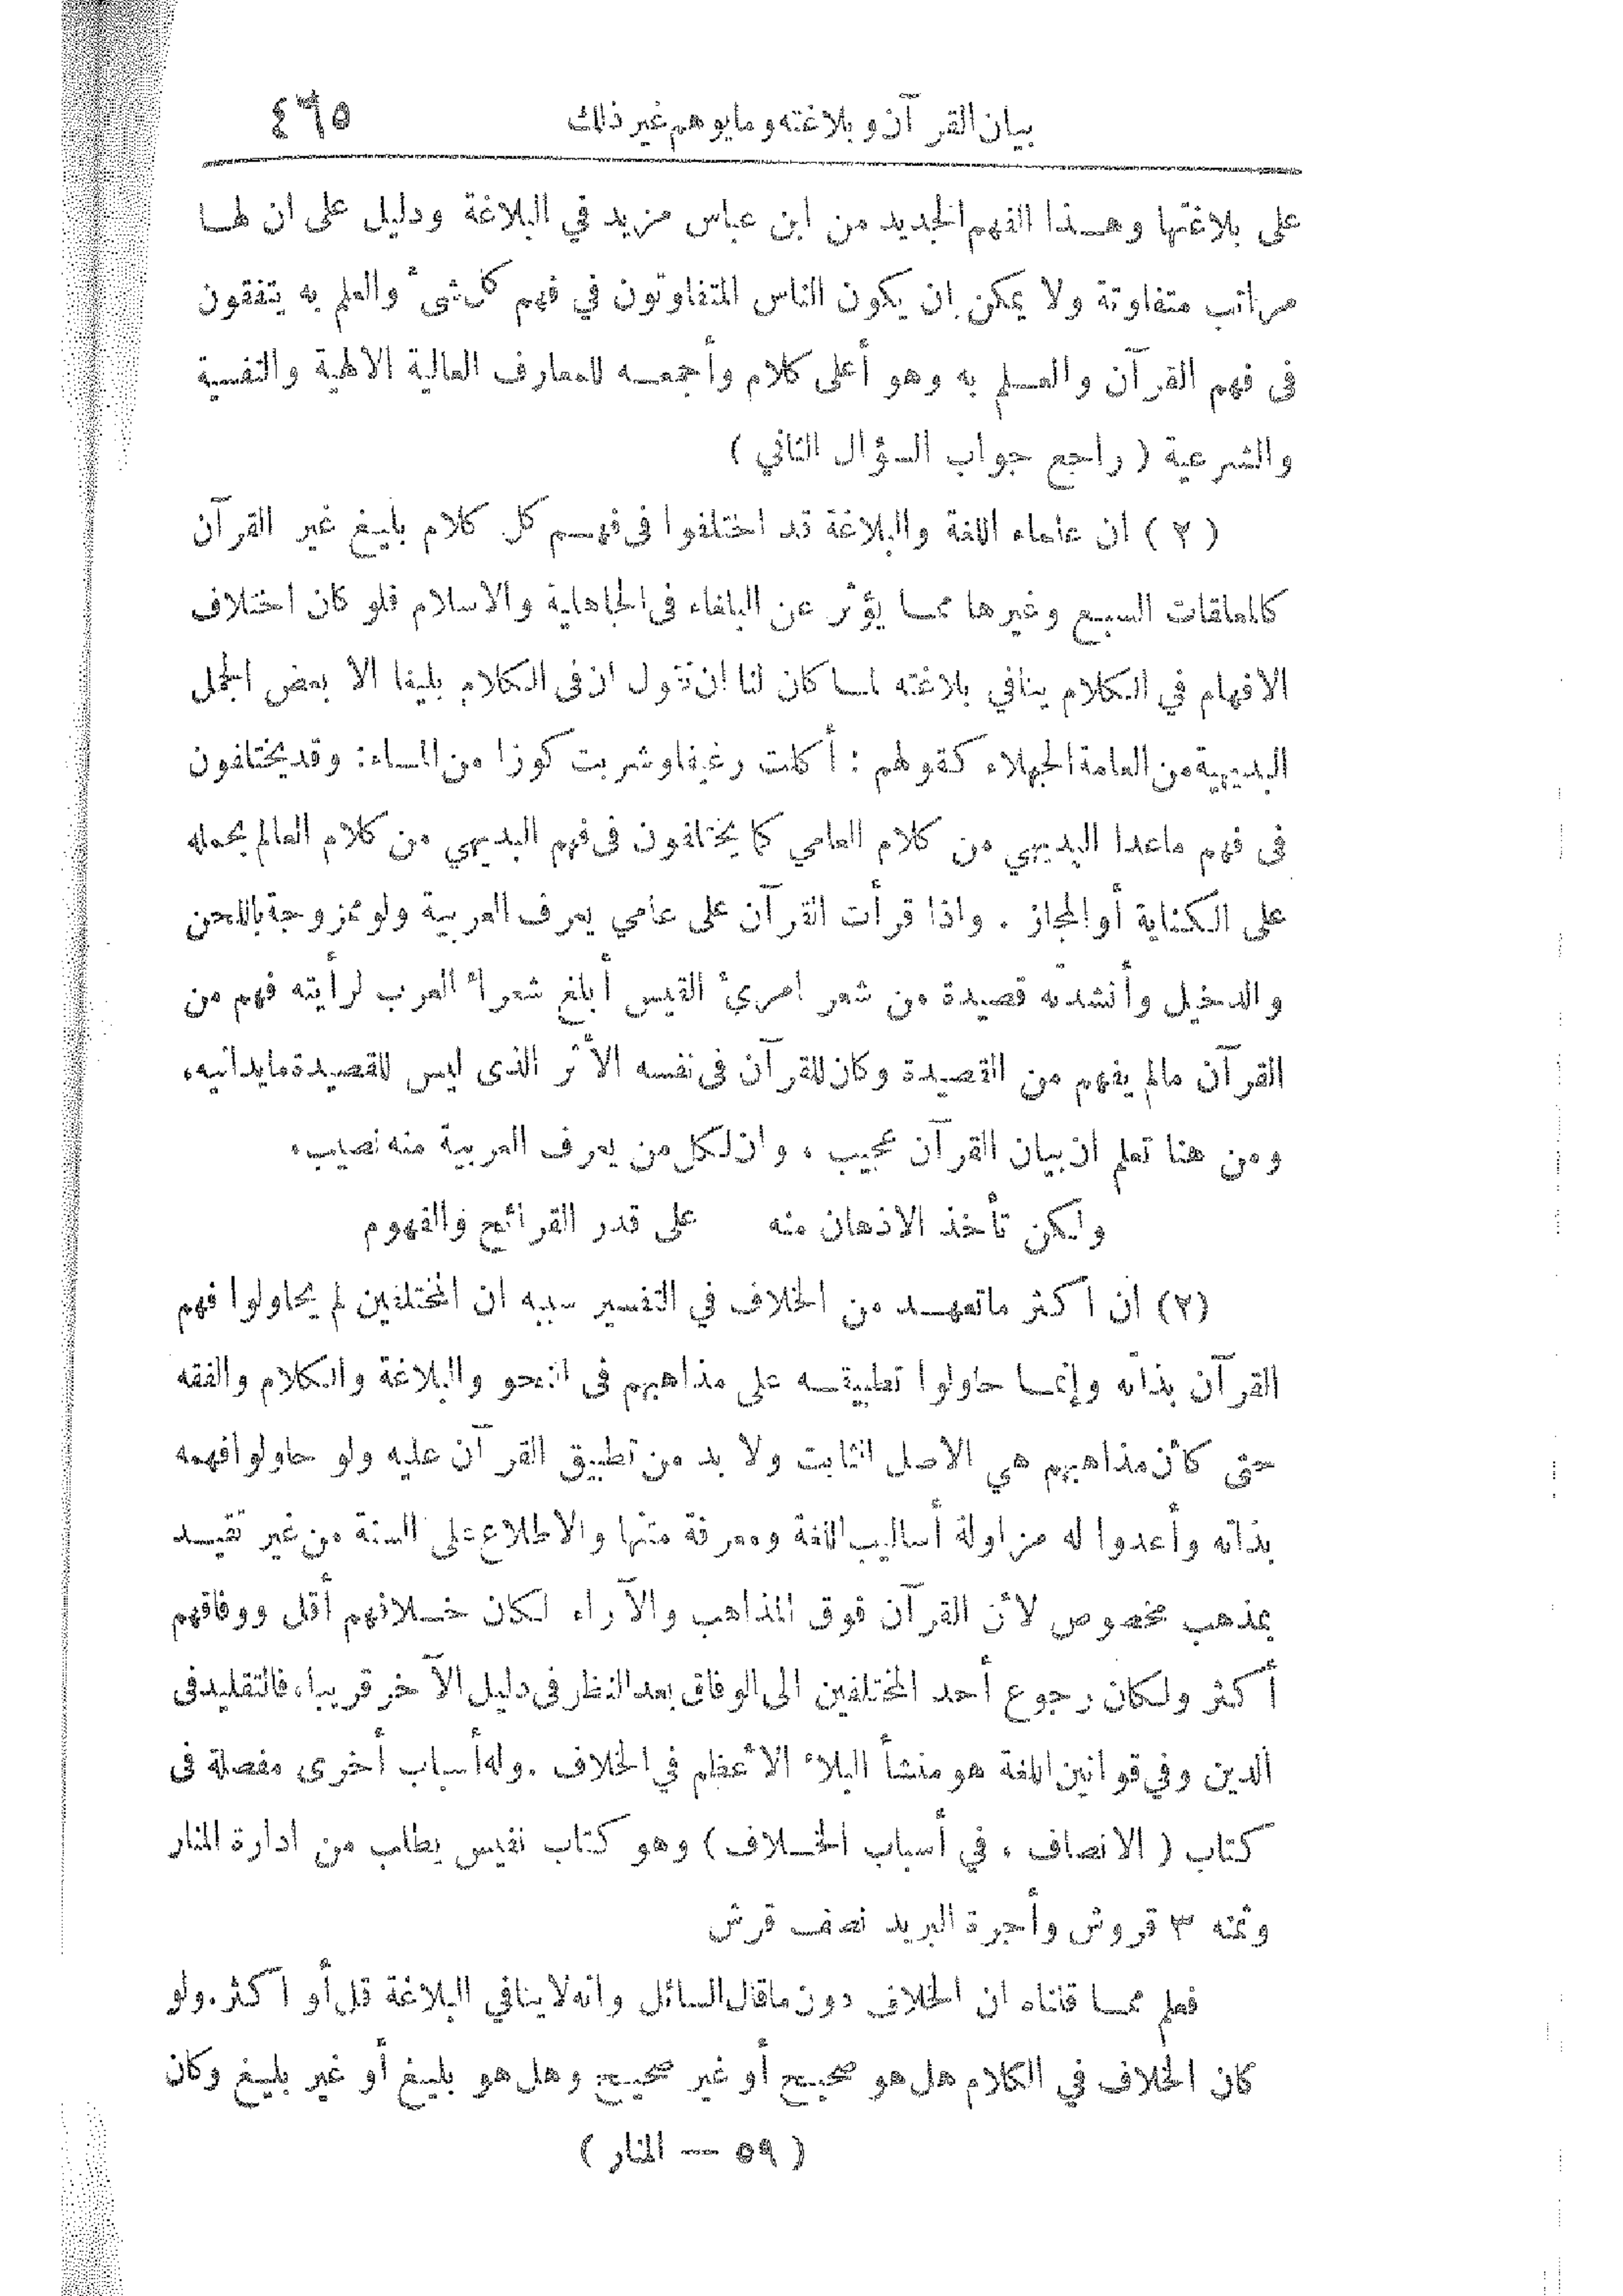 بيان القرآن وبلاغته وما يوهم غير ذلك ٤٦٥
على بلاغتها وهـذا الفهم الجديد من ابن عباس مزيد في البلاغة ودليل على ان لهـا
مراتب متفاوتة ولا يمكن ان يكون الناس المتفاوتون في فهم كل شيء والعلم به يتفقون
في فهم القرآن والعـلم به وهو أعلى كلام وأجمعـه للمعارف العالية الالهية والنفسية
والشرعية ( راجع جواب السؤال الثاني )
( ٢ ) ان علماء اللغة والبلاغة قد اختلفوا في فهـم كل كلام بليـغ غير القرآن
كالمعلقات السبـع وغيرها ممـا يؤثر عن البلغاء في الجاهلية والاسلام فلو كان اختلاف
الافهام في الكلام ينافي بلاغته لمـا كان لنا ان نقول ان في الكلام بليغا الا بعض الجمل
البديهية من العامة الجهلاء كقولهم : أكلت رغيفا وشربت كوزا من المـاء : وقد يختلفون
في فهم ماعدا البديهي من كلام العامي كما يختلفون في فهم البديهي من كلام العالم بحمله
على الكناية أو المجاز . واذا قرأت القرآن على عامي يعرف العربية ولو ممزوجة باللحن
والدخيل وأنشدته قصيدة من شعر امرئ القيس أبلغ شعراء العرب لرأيته فهم من
القرآن مالم يفهم من القصيدة وكان للقرآن في نفسه الأثر الذي ليس للقصيدة مايدانيه،
ومن هنا تعلم ان بيان القرآن عجيب ، وان لكل من يعرف العربية منه نصيب،
ولكن تأخذ الاذهان منه على قدر القرائح والفهوم
(٢) ان اكثر ماتعهـد من الخلاف في التفسير سببه ان المختلفين لم يحاولوا فهم
القرآن بذاته وإنمـا حاولوا تطبيقـه على مذاهبهم في النحو والبلاغة والكلام والفقه
حتى كأن مذاهبهم هي الاصل الثابت ولا بد من تطبيق القرآن عليه ولو حاولوا فهمه
بذاته وأعدوا له مزاولة أساليب اللغة ومعرفة متنها والاطلاع على السنة من غير تقيـد
بمذهب مخصوص لأن القرآن فوق المذاهب والآراء لكان خـلافهم أقل ووفاقهم
أكثر ولكان رجوع أحد المختلفين الى الوفاق بعد النظر في دليل الآخر قريبا، فالتقليد في
الدين وفي قوانين اللغة هو منشأ البلاء الأعظم في الخلاف . وله أسباب أخرى مفصلة في
كتاب ( الانصاف ، في أسباب الخـلاف ) وهو كتاب نفيس يطلب من ادارة المنار
وثمنه ٣ قروش وأجرة البريد نصف قرش
فعلم ممـا قلناه ان الخلاف دون ماقال السائل وانه لا ينافي البلاغة قل أو اكثر. ولو
كان الخلاف في الكلام هل هو صحيـح أو غير صحيـح وهل هو بليـغ أو غير بليـغ وكان
( ٥٩ — المنار )